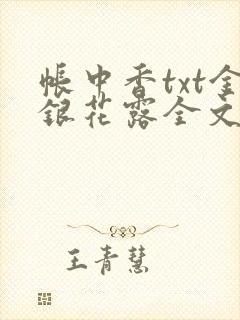 帳中香txt金
銀花露全文
王青慧